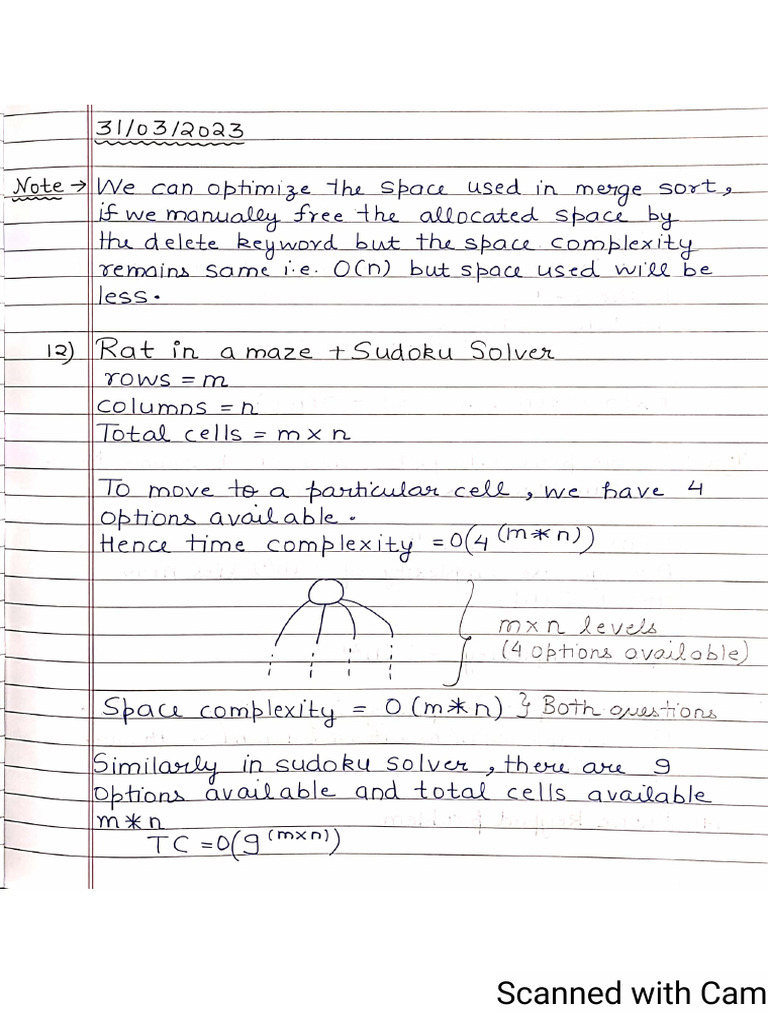 31/03/2023
Note → We can optimize the space used in merge sort,
if we manually free the allocated space by
the delete keyword but the space complexity
remains same i.e. O(n) but space used will be
less.
12) Rat in a maze + Sudoku Solver
rows = m
columns = n
Total cells = m x n
To move to a particular cell, we have 4
options available.
Hence time complexity = O(4^(m*n))
m x n levels
(4 options available)
Space complexity = O(m*n) } Both questions
Similarly in sudoku solver, there are 9
options available and total cells available
m*n
TC = O(9^(m x n))
Scanned with Cam